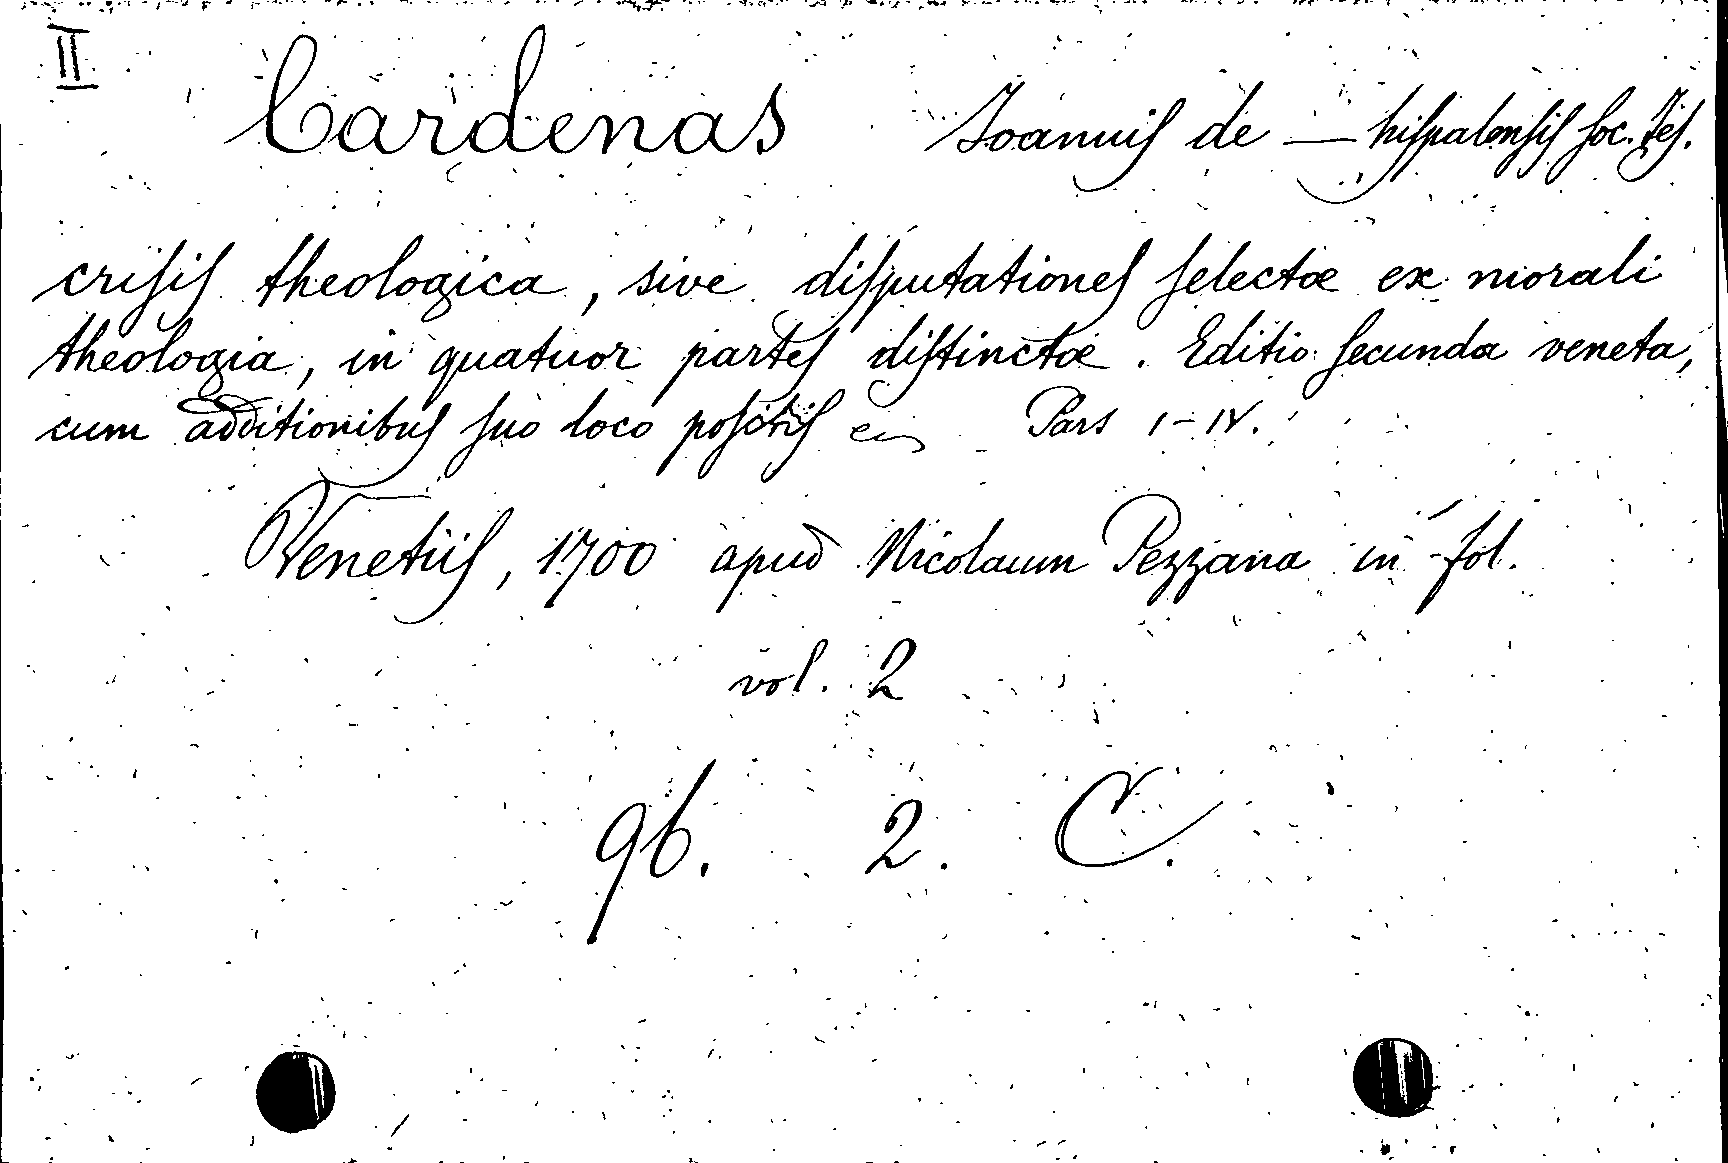 II
Cardenas Joannis de — hispalensis soc. Jes.
crisis theologica, sive disputationes selectæ ex morali
theologia, in quatuor partes distinctæ. Editio secunda veneta,
cum additionibus suo loco positis Pars I-IV.
Venetiis, 1700 apud Nicolaum Pezzana in fol.
vol. 2
96. 2. C.